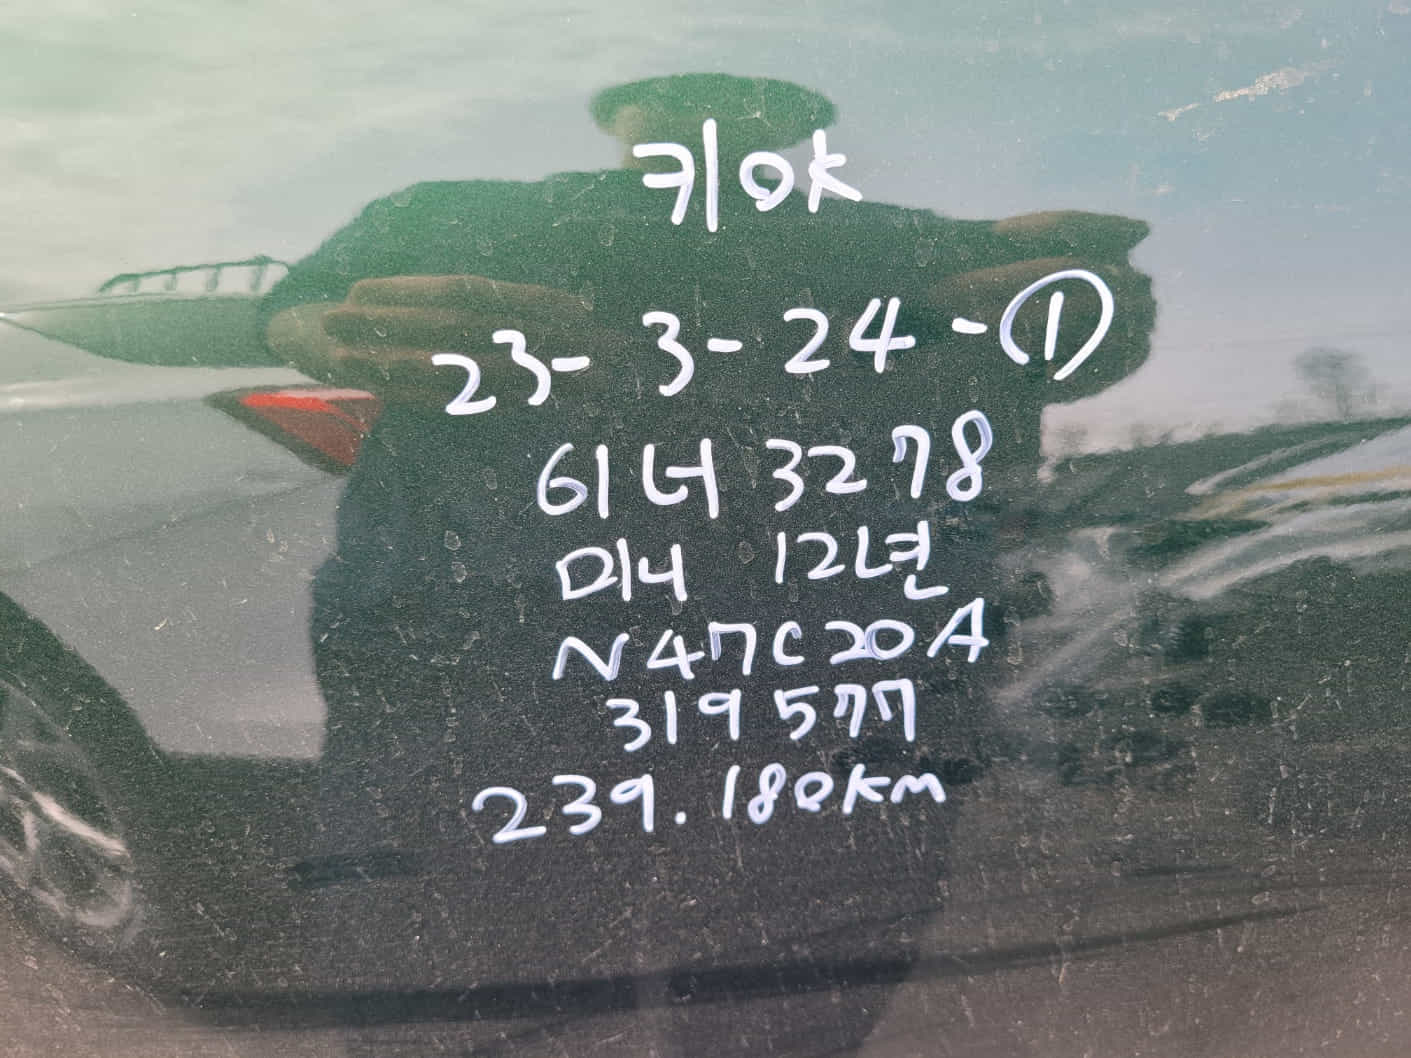 키OK
23-3-24-①
61너3278
미니 12년
N47C20A
319577
239.180km